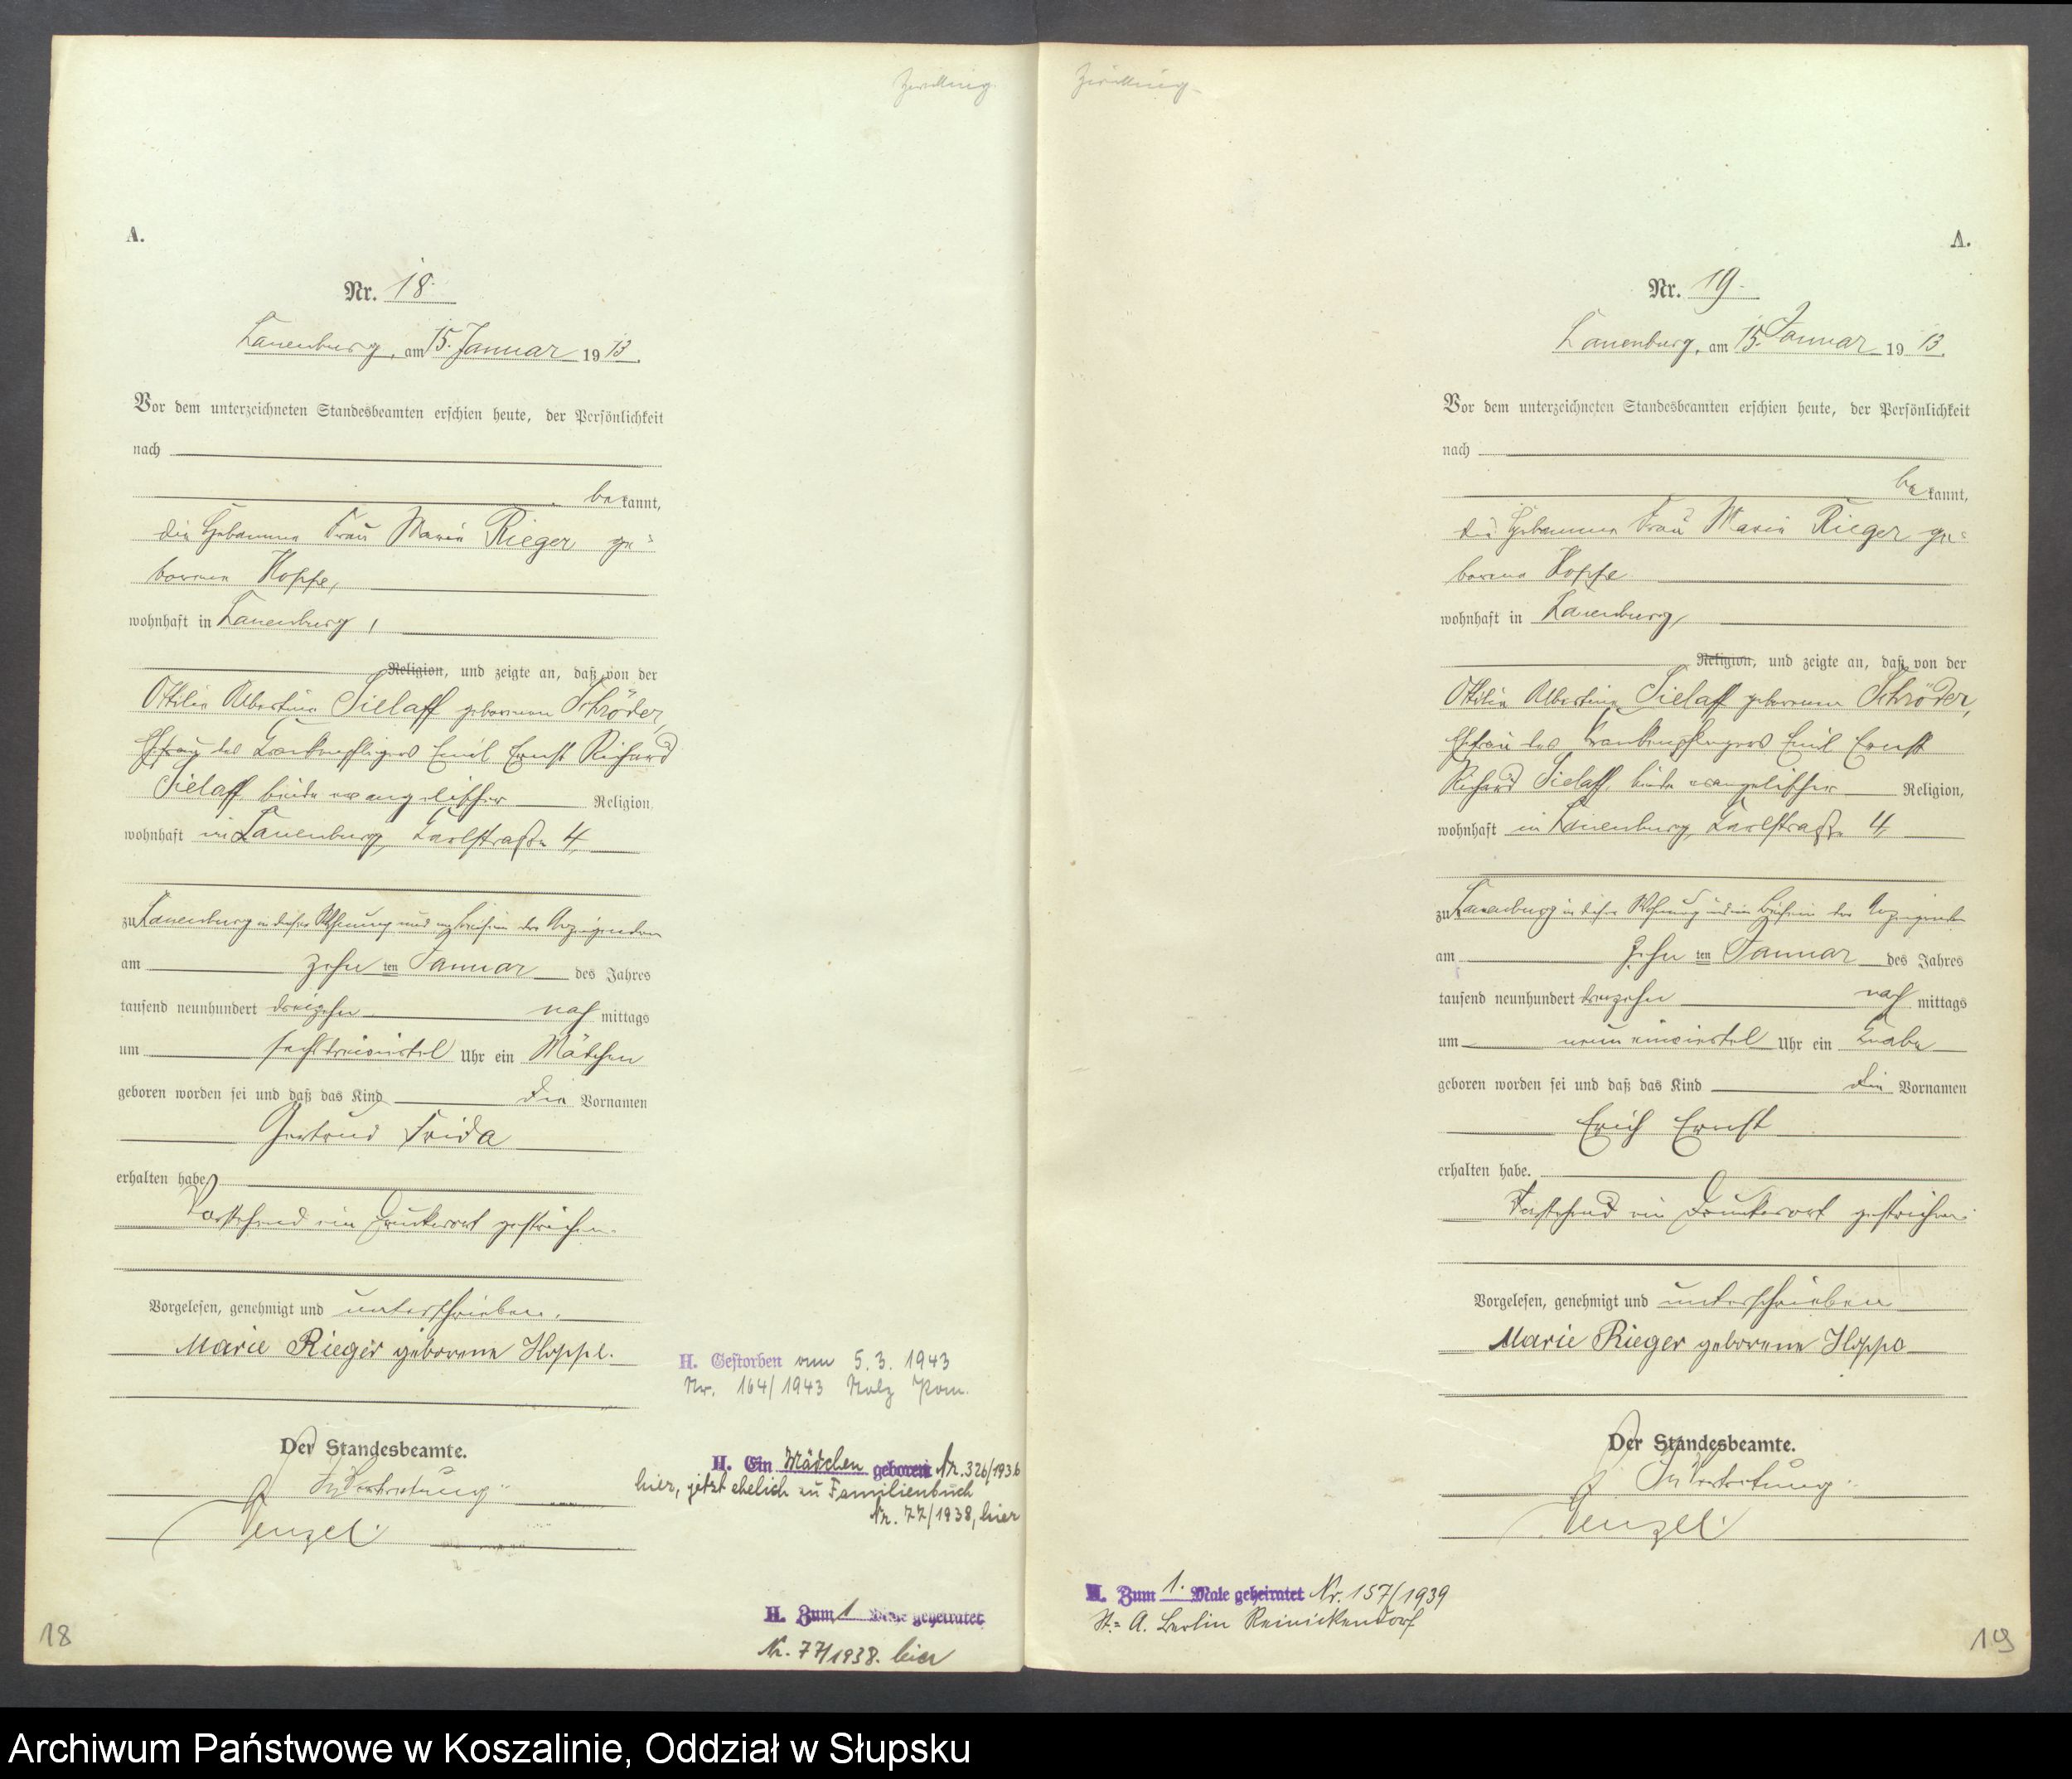 Zwilling.
A.
Nr. 18.
Lauenburg, am 15. Januar 1913.
Vor dem unterzeichneten Standesbeamten erschien heute, der Persönlichkeit
nach
bekannt,
die Hebamme Frau Marie Rieger ge=
borene Hoppe,
wohnhaft in Lauenburg,
Religion, und zeigte an, daß von der
Ottilie Albertine Sielaff geborenen Schröder,
Ehefrau des Krankenpflegers Emil Ernst Richard
Sielaff, beide evangelischer Religion,
wohnhaft in Lauenburg, Karlstraße 4,
zu Lauenburg in dieser Wohnung und im Beisein der Anzeigenden
am zehnten Januar des Jahres
tausend neunhundert dreizehn nachmittags
um sechs dreiviertel Uhr ein Mädchen
geboren worden sei und daß das Kind die Vornamen
Gertrud Frida
erhalten habe.
Vorstehend ein Druckwort gestrichen.
Vorgelesen, genehmigt und unterschrieben.
Marie Rieger geborene Hoppe.
Der Standesbeamte.
In Vertretung
Wenzel.
H. Gestorben am 5.3.1943
Nr. 164/1943 Pom.
H. Ein Mädchen geboren Nr. 326/1936
hier, jetzt ehelich zu Familienbuch
Nr. 77/1938, hier
H. Zum 1 Male geheiratet
Nr. 77/1938. hier
18
Zwilling.
A.
Nr. 19.
Lauenburg, am 15. Januar 1913.
Vor dem unterzeichneten Standesbeamten erschien heute, der Persönlichkeit
nach
bekannt,
die Hebamme Frau Marie Rieger ge=
borene Hoppe
wohnhaft in Lauenburg,
Religion, und zeigte an, daß von der
Ottilie Albertine Sielaff geborenen Schröder,
Ehefrau des Krankenpflegers Emil Ernst
Richard Sielaff, beide evangelischer Religion,
wohnhaft in Lauenburg, Karlstraße 4,
zu Lauenburg in dieser Wohnung und im Beisein der Anzeigenden
am zehnten Januar des Jahres
tausend neunhundert dreizehn nachmittags
um neun einviertel Uhr ein Knabe
geboren worden sei und daß das Kind die Vornamen
Erich Ernst
erhalten habe.
Vorstehend ein Druckwort gestrichen.
Vorgelesen, genehmigt und unterschrieben
Marie Rieger geborene Hoppe
Der Standesbeamte.
In Vertretung.
Wenzel.
H. Zum 1. Male geheiratet Nr. 157/1939
St.= A. Berlin Reinickendorf
19
Archiwum Państwowe w Koszalinie, Oddział w Słupsku